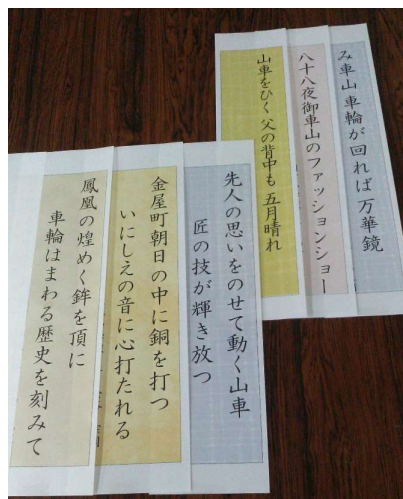 み車山車輪が回れば万華鏡
八十八夜御車山のファッションショー
山車をひく父の背中も五月晴れ
先人の思いをのせて動く山車
匠の技が輝き放つ
金屋町朝日の中に銅を打つ
いにしえの音に心打たれる
鳳凰の煌めく鉾を頂に
車輪はまわる歴史を刻みて